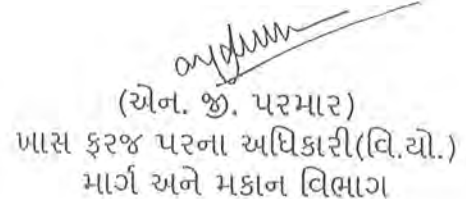 (એન. જી. પરમાર)
ખાસ ફરજ પરના અધિકારી(વિ.યો.)
માર્ગ અને મકાન વિભાગ